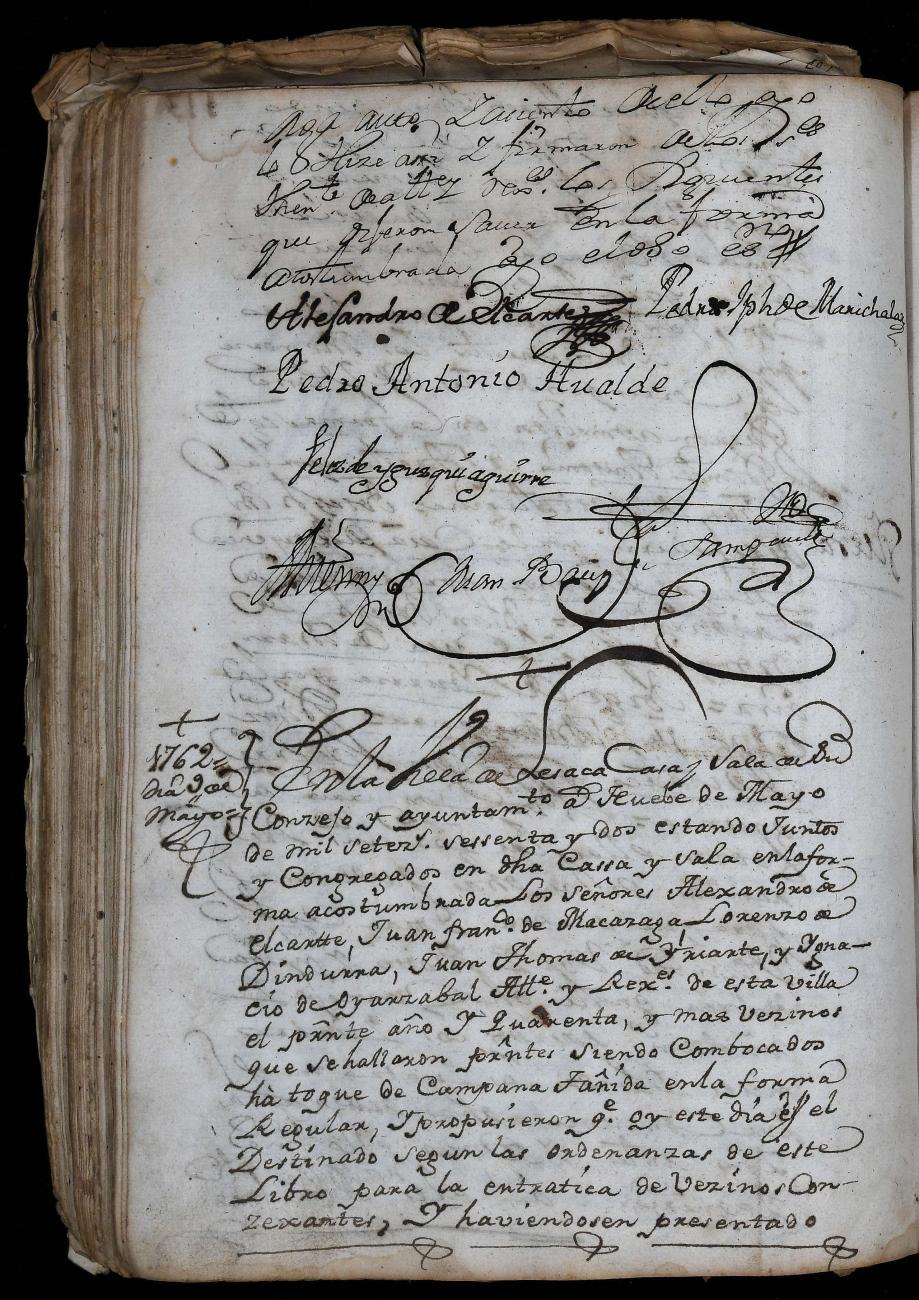 por auto, y asiento de ello, yo
lo hize assi y firmaron dhos Ss.es
then.te de alle y rex.es los siguientes
que dijeron saver en la forma
acostumbrada yo el dho es.no
Alesandro de Elcarte Pedro Jph de Marichalar
Pedro Antonio Hualde
Felez de yguzquiaguirre
Juan B
Sampaul
1762=
dia 9 de
Mayo=
En la Villa de Lesaca Casa, y Sala de su
Conzejo y ayuntam.to a Nuebe de Mayo
de mil setez.s sessenta y dos estando Juntos
y Congregados en dha Cassa y sala enlafor-
ma acostumbrada Los señores Alexandro de
elcartte, Juan fran.co de Macazaga Lorenzo de
Dindurra, Juan Thomas de Yriarte, y Ygna-
cio de Oyarzabal Alle. y Rex.es de esta villa
el prñte año Y Quarenta, y mas vezinos
que sehallaron prñtes siendo Combocados
hà toque de Campana Tañida enla forma
Regular, Y propusieron q.e oy este día es el
Destinado segun las ordenanzas de este
Libro para la entratica de Vezinos Con-
zexantes, Y haviendosen presentado